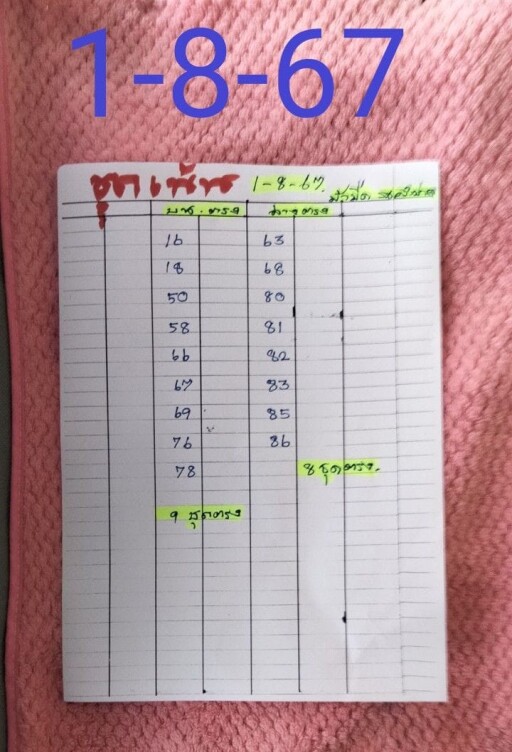 1-8-67
ชุดเน้น 1-8-67
บน. ตรง ล่างตรง
16 63
18 68
50 80
58 81
66 82
67 83
69 85
76 86
78 8 ชุดตรง.
9 ชุดตรง